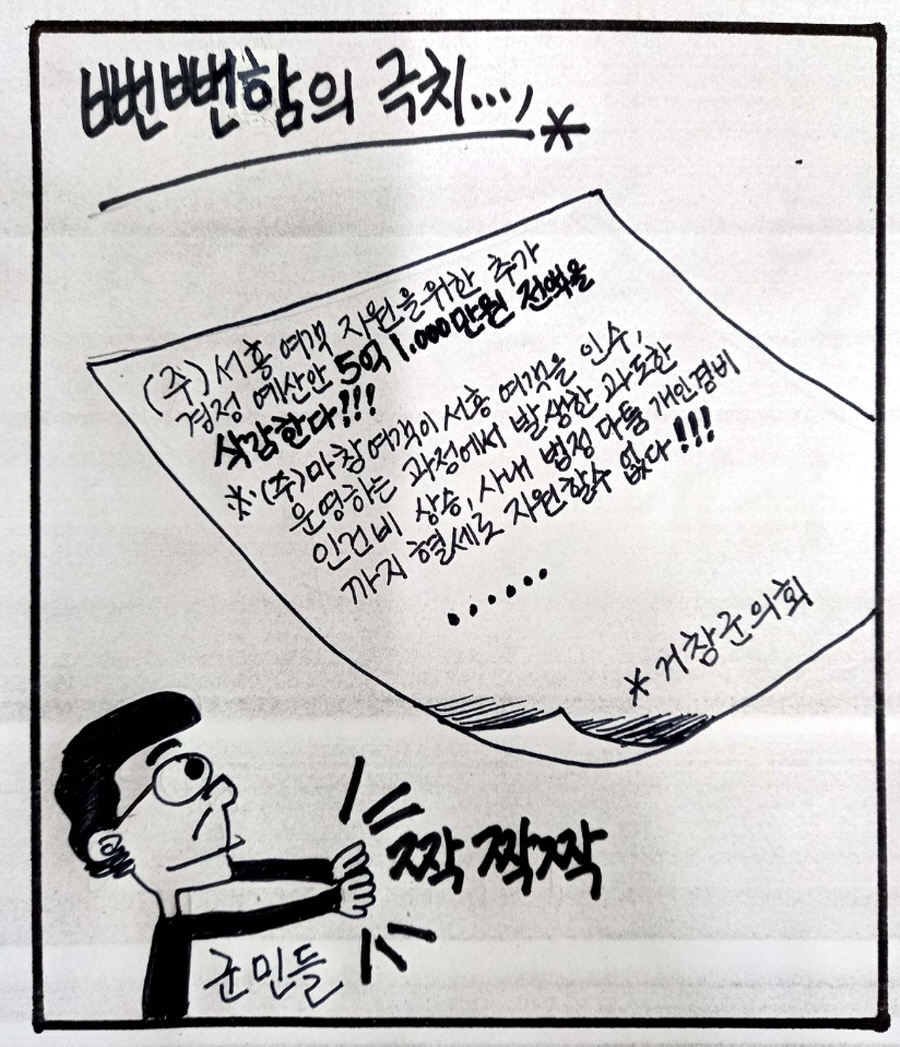 뻔뻔함의 극치...,
*
(주)서흥여객 지원을위한 추가
경정 예산안 5억1.000만원 전액을
삭감한다!!!
※(주)마창여객이 서흥 여객을 인수,
운영하는 과정에서 발생한 과도한
인건비 상승, 사내 법정 다툼 개인경비
까지 혈세로 지원할수 없다!!!
••••••
*거창군의회
짝 짝짝
군민들